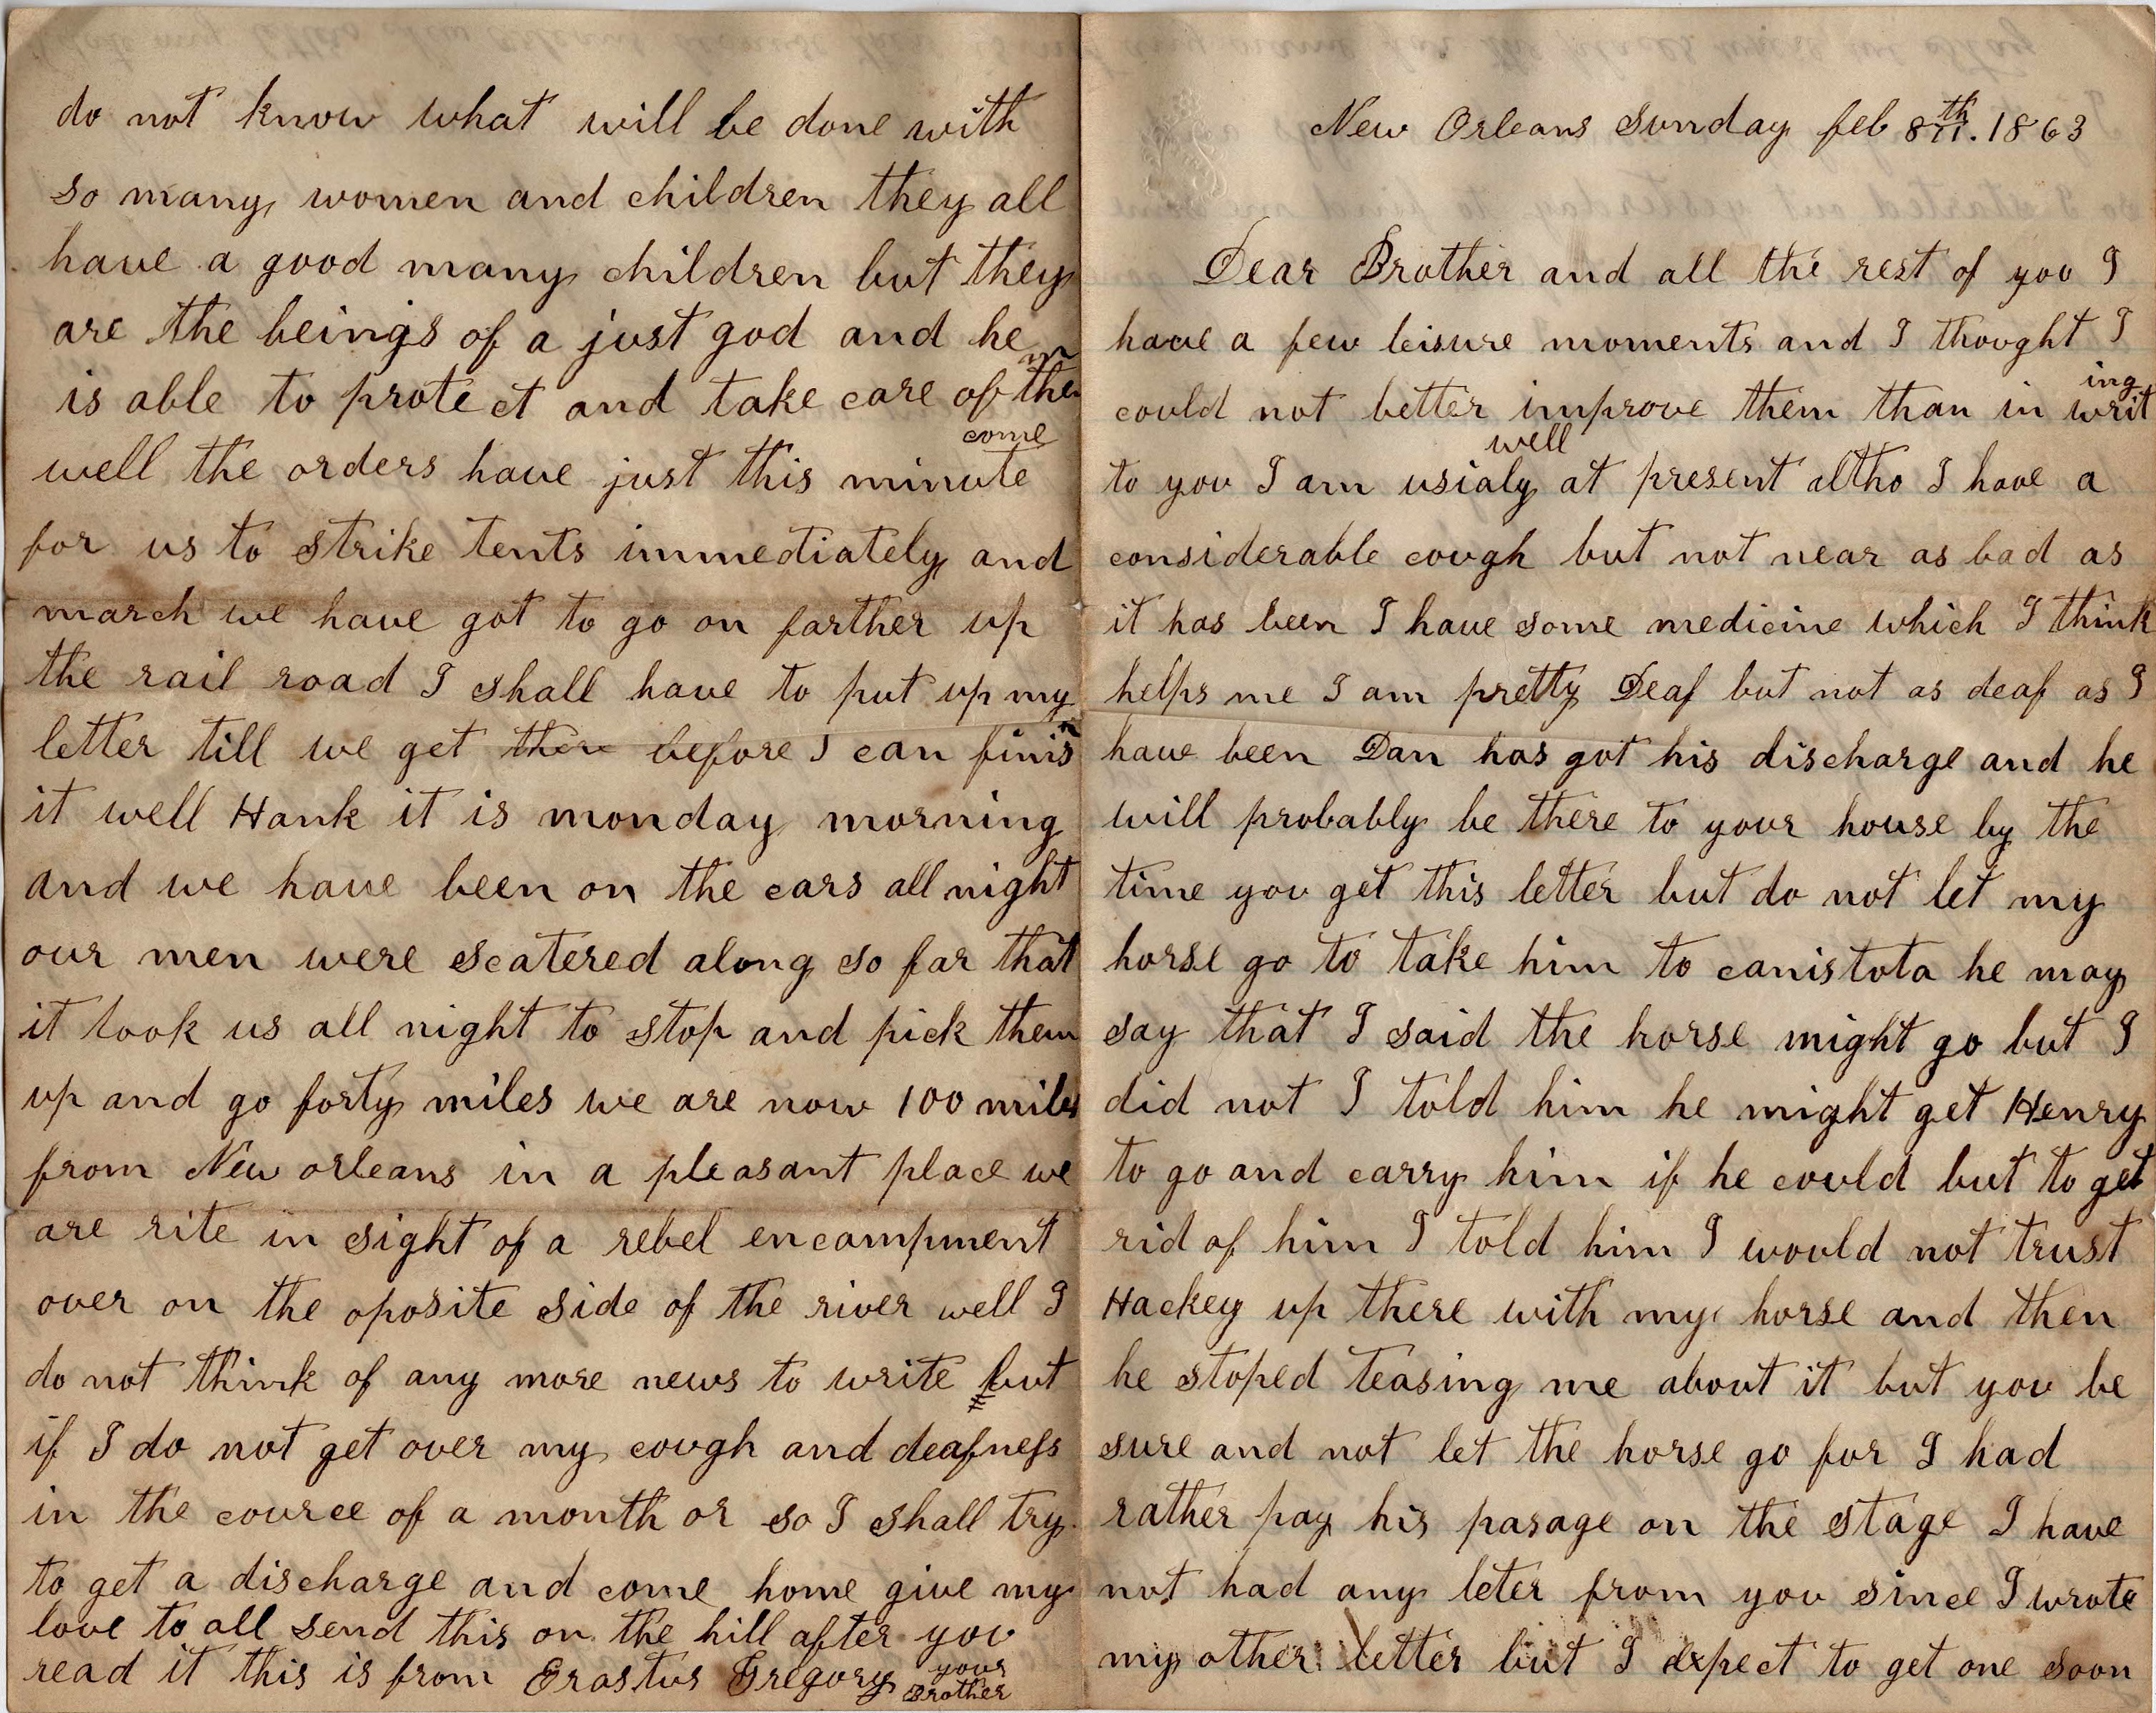 do not know what will be done with
so many women and children they all
have a good many children but they
are the beings of a just god and he
is able to protect and take care of them
well the orders have just this minute come
for us to strike tents immediately and
march we have got to go on farther up
the rail road I shall have to put up my
letter till we get there before I can finish
it well Hank it is monday morning
and we have been on the cars all night
our men were scatered along so far that
it took us all night to stop and pick them
up and go forty miles we are now 100 miles
from New orleans in a pleasant place we
are rite in sight of a rebel encampment
over on the oposite side of the river well I
do not think of any more news to write but
if I do not get over my cough and deafness
in the cource of a month or so I shall try
to get a discharge and come home give my
love to all send this on the hill after you
read it this is from Erastus Gregory your
Brother
New Orleans Sunday feb 8th. 1863
Dear Brother and all the rest of you I
have a few leisure moments and I thought I
could not better improve them than in writing
to you I am usialy well at present altho I have a
considerable cough but not near as bad as
it has been I have some medicine which I think
helps me I am pretty Deaf but not as deaf as I
have been Dan has got his discharge and he
will probably be there to your house by the
time you get this letter but do not let my
horse go to take him to canistota he may
say that I said the horse might go but I
did not I told him he might get Henry
to go and carry him if he could but to get
rid of him I told him I would not trust
Hackey up there with my horse and then
he stoped teasing me about it but you be
sure and not let the horse go for I had
rather pay his pasage on the stage I have
not had any leter from you since I wrote
my other letter but I expect to get one soon